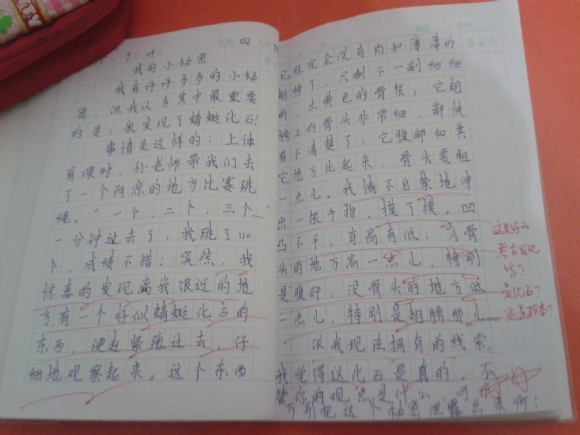 四
我的小秘密
我有许许多多的小秘
密，但我认为其中最重要
的是：我发现了蜻蜓化石！
事情是这样的：上体
育课时，孙老师带我们去
了一个阴凉的地方比赛跳
绳。“一个，二个，三个……”
一分钟过去了，我跳了110
个，成绩不错！突然，我
惊喜的发现离我很近的地
方有一个好似蜻蜓化石的
东西，便赶紧跑过去，仔
细地观察起来。这个东西
已经完全没有肉和薄薄的
翅膀了，只剩下一副细细
的，土黄色的骨架；它翅
膀上的骨头非常细，都快
看不清楚了；它腹部和其
它地方比起来，骨头要粗
一点儿。我情不自禁地伸
出一根手指，摸了摸。凹
凸不平，有高有低，有骨
头的地方高一点儿，特别
是腹部，没骨头的地方低
一点儿，特别是翅膀那儿。
依我现在拥有的线索，
我觉得这化石是真的。不
管你的观点是什么，
万别把这个秘密泄露出去啊！
这是你的
考古发现
吗？
是化石？
还是标本？